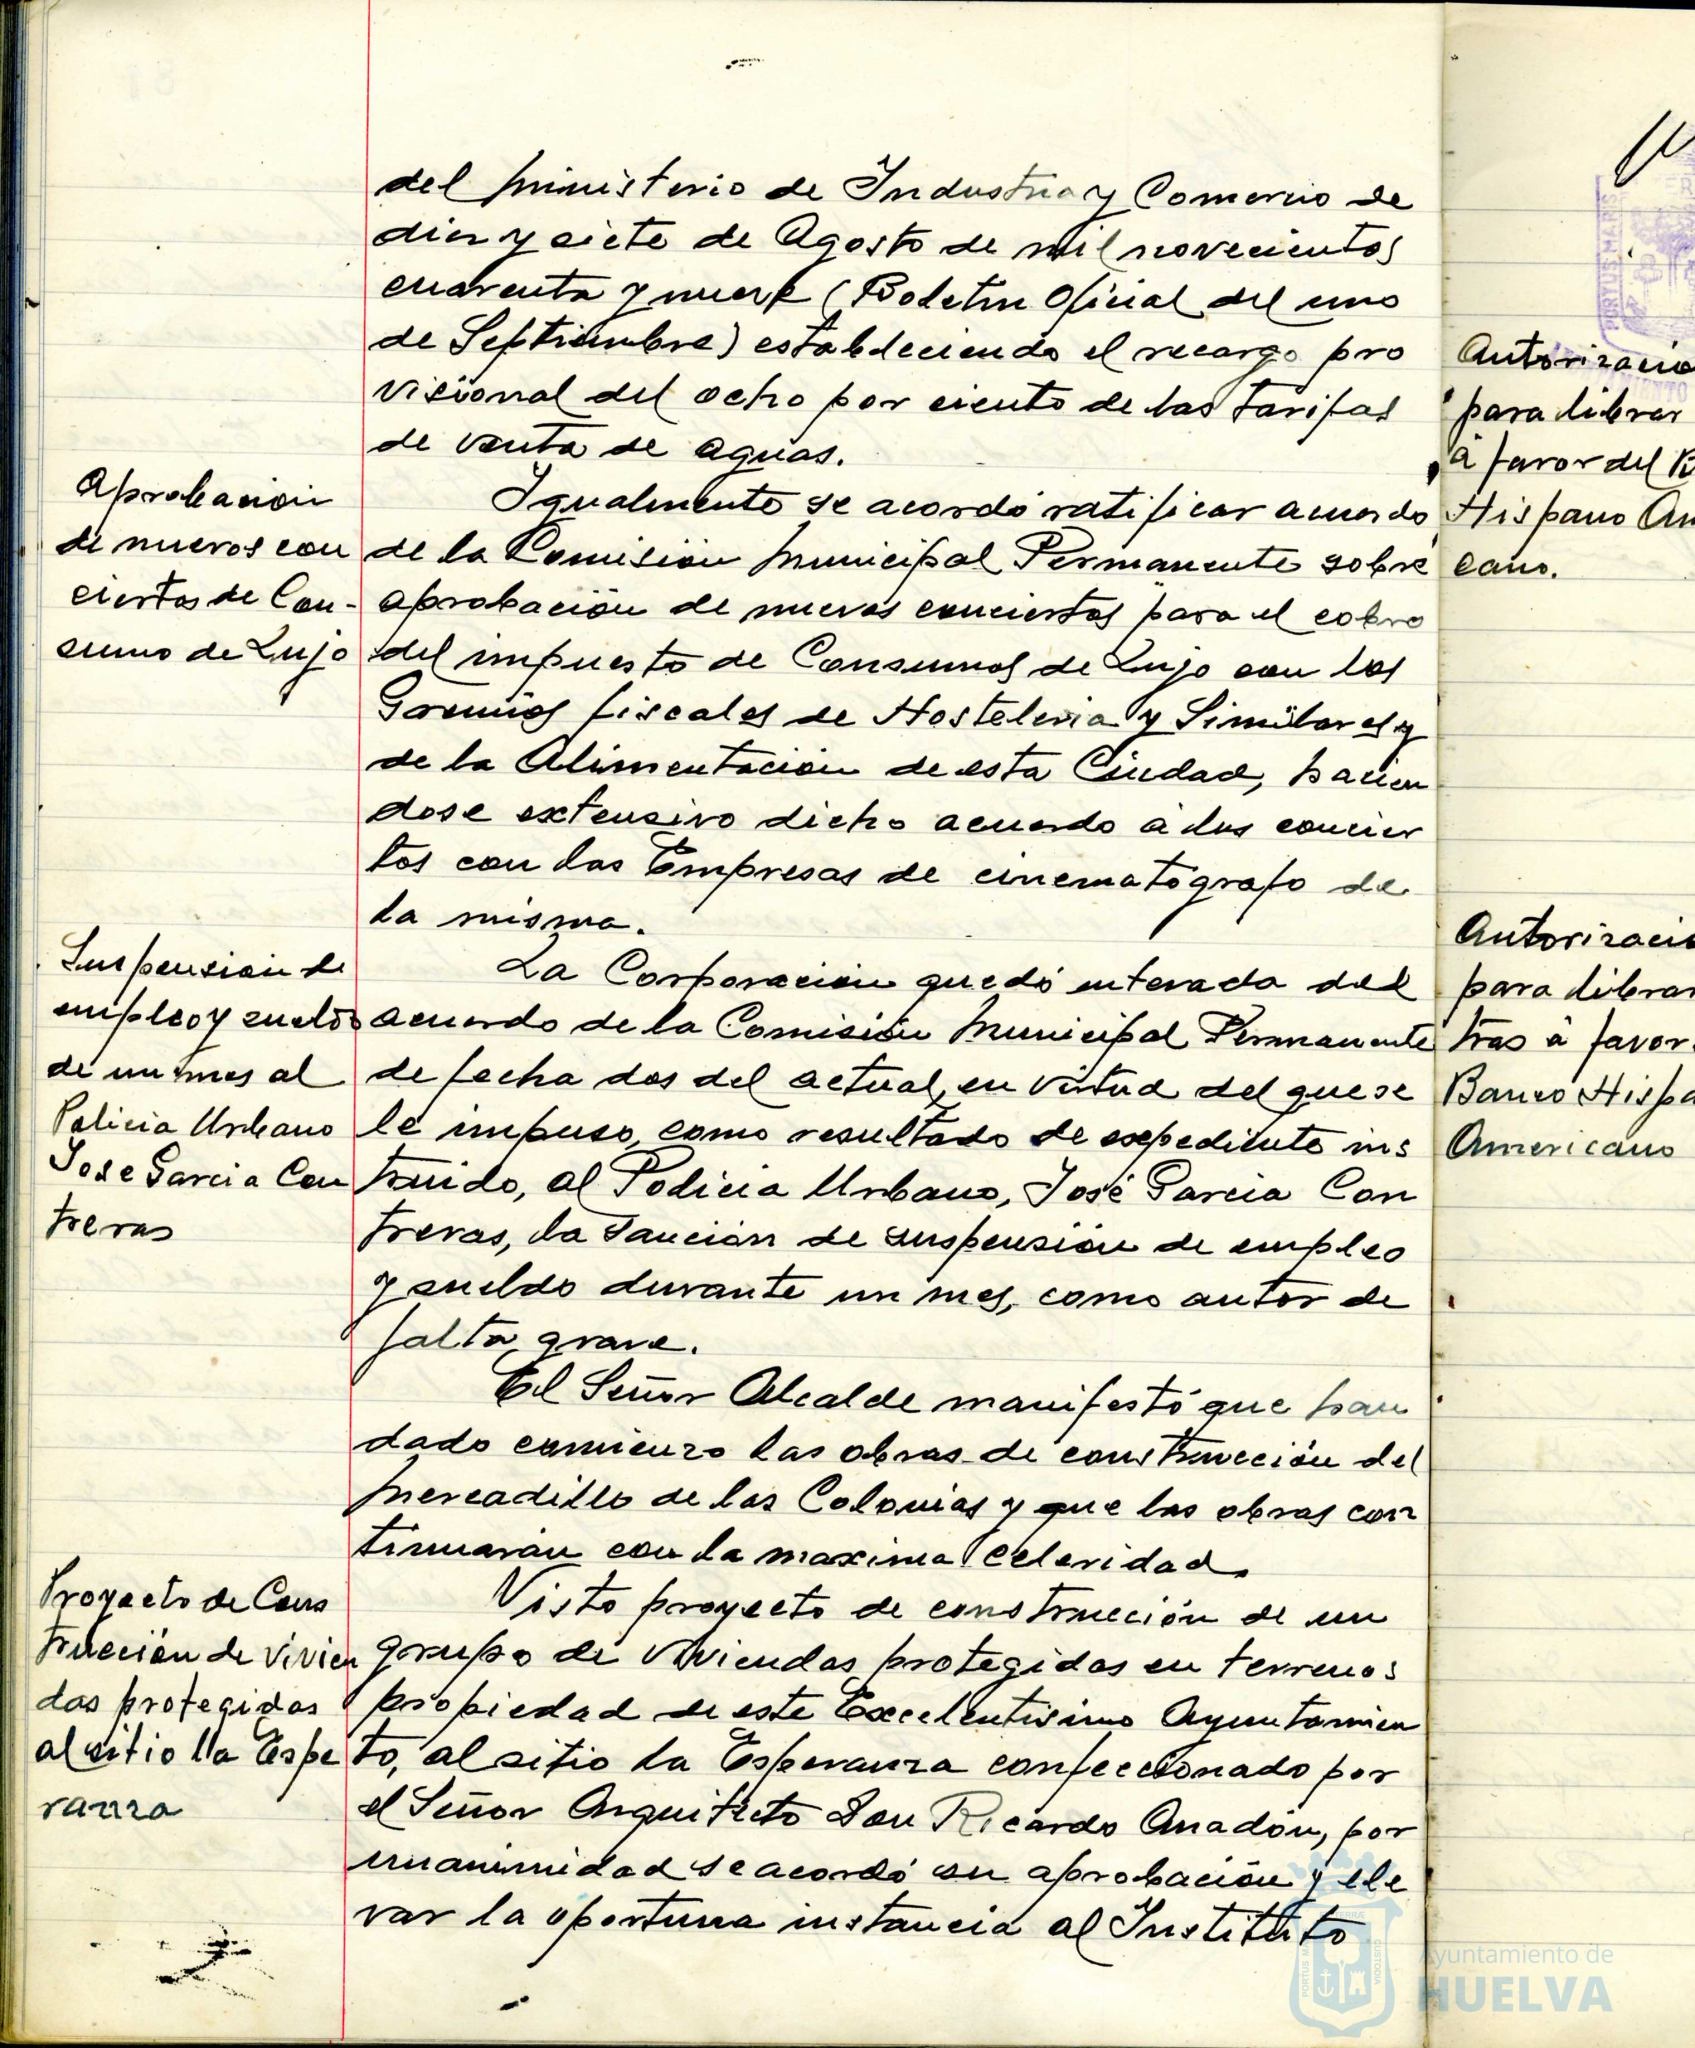 del Ministerio de Industria y Comercio de
diez y siete de Agosto de mil novecientos
cuarenta y nueve (Boletin Oficial del uno
de Septiembre) estableciendo el recargo pro
visional del ocho por ciento de las tarifas
de venta de aguas.
Aprobación
de nuevos con
ciertos de Con-
sumo de Lujo
Igualmente se acordó ratificar acuerdo
de la Comisión Municipal Permanente sobre
aprobación de nuevos conciertos para el cobro
del impuesto de Consumos de Lujo con los
Gremios fiscales de Hosteleria y Similares y
de la Alimentación de esta Ciudad, hacien
dose extensivo dicho acuerdo á los concier
tos con las Empresas de cinematógrafo de
la misma.
Suspensión de
empleo y sueldo
de un mes al
Policia Urbano
Jose Garcia Con
treras
La Corporación quedó enterada del
acuerdo de la Comisión Municipal Permanente
de fecha dos del actual, en virtud del que se
le impuso, como resultado de expediente ins
truido, al Policia Urbano, José Garcia Con
treras, la sanción de suspensión de empleo
y sueldo durante un mes, como autor de
falta grave.
El Señor Alcalde manifestó que han
dado comienzo las obras de construcción del
Mercadillo de las Colonias y que las obras con
tinuarán con la maxima celeridad.
Proyecto de Cons
trucción de vivien
das protegidas
al sitio la Espe
ranza
Visto proyecto de construcción de un
grupo de viviendas protegidas en terrenos
propiedad de este Excelentisimo Ayuntamien
to, al sitio la Esperanza confeccionado por
el Señor Arquitecto Don Ricardo Anadón, por
unanimidad se acordó su aprobación y ele
var la oportuna instancia al Instituto
Autorizacio
para librar
á favor del B
Hispano Am
cano.
Autorizacio
para librar
tras á favor
Banco Hispa
Americano
PORTUS MARIS
Ayuntamiento de
HUELVA